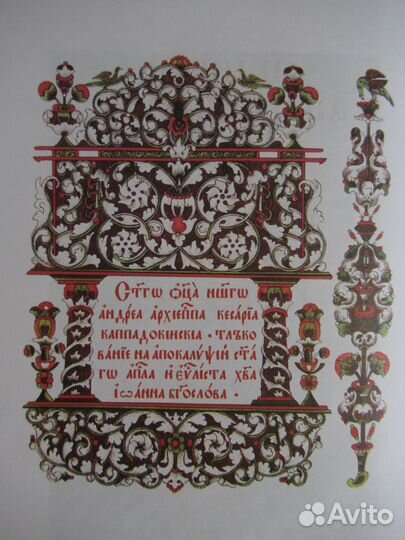 Ст҃гѡ ѻц҃а нш҃гѡ
андреа архіеп҃па кесаріа
каппадокінскіа · тлъко
ваніе на апокалѵѱий ст҃а
гѡ ап҃ла и еѵ҃листа хв҃а
іѡанна бг҃ослова ·
Avito